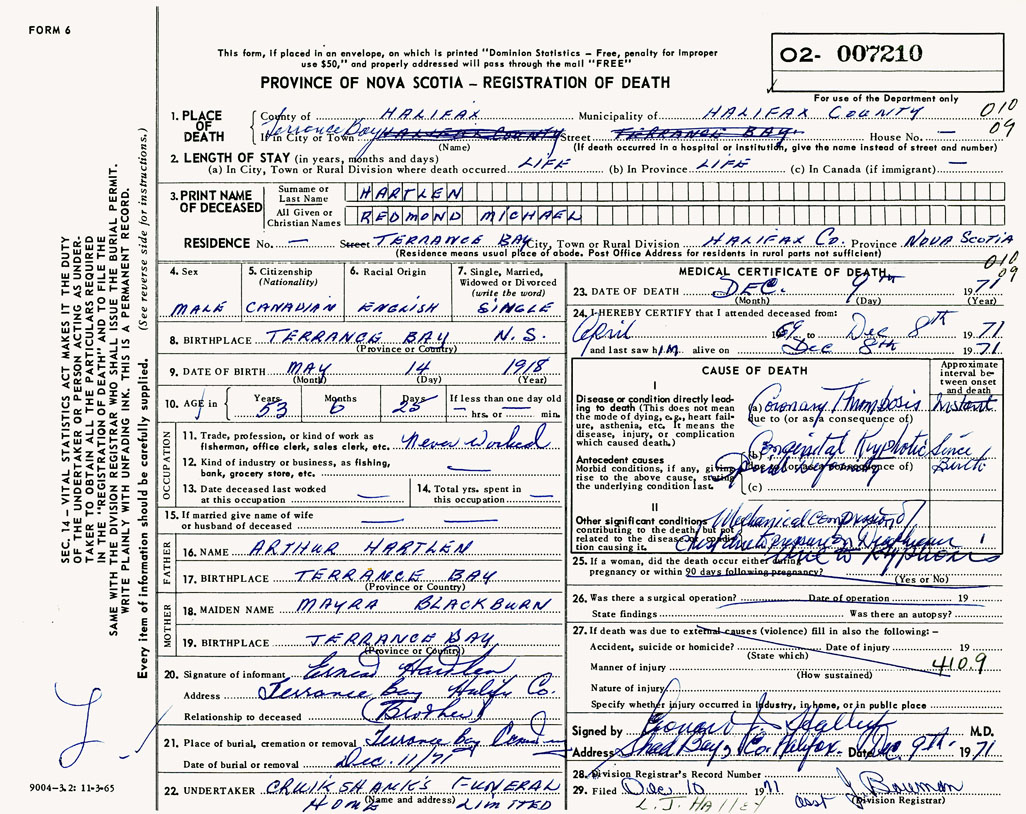 FORM 6
This form, if placed in an envelope, on which is printed "Dominion Statistics – Free, penalty for improper
use $50," and properly addressed will pass through the mail "FREE"
PROVINCE OF NOVA SCOTIA – REGISTRATION OF DEATH
02- 007210
For use of the Department only
1. PLACE OF DEATH
County of HALIFAX Municipality of HALIFAX COUNTY 010
If in City or Town Terrance Bay HALIFAX COUNTY Street TERRANCE BAY House No. — 09
(Name) (If death occurred in a hospital or institution, give the name instead of street and number)
2. LENGTH OF STAY (in years, months and days)
(a) In City, Town or Rural Division where death occurred LIFE (b) In Province LIFE (c) In Canada (if immigrant) —
3. PRINT NAME OF DECEASED
Surname or Last Name HARTLEN
All Given or Christian Names REDMOND MICHAEL
RESIDENCE No. — Street TERRANCE BAY City, Town or Rural Division HALIFAX Co. Province NOVA SCOTIA
(Residence means usual place of abode. Post Office Address for residents in rural parts not sufficient)
010
09
4. Sex MALE
5. Citizenship (Nationality) CANADIAN
6. Racial Origin ENGLISH
7. Single, Married, Widowed or Divorced (write the word) SINGLE
8. BIRTHPLACE TERRANCE BAY N.S.
(Province or Country)
9. DATE OF BIRTH MAY 14 1918
(Month) (Day) (Year)
10. AGE in Years 53 Months 6 Days 25 If less than one day old — hrs. or — min.
OCCUPATION
11. Trade, profession, or kind of work as fisherman, office clerk, sales clerk, etc. Never Worked
12. Kind of industry or business, as fishing, bank, grocery store, etc. —
13. Date deceased last worked at this occupation —
14. Total yrs. spent in this occupation —
15. If married give name of wife or husband of deceased — —
FATHER
16. NAME ARTHUR HARTLEN
17. BIRTHPLACE TERRANCE BAY
(Province or Country)
MOTHER
18. MAIDEN NAME MAYRA BLACKBURN
19. BIRTHPLACE TERRANCE BAY
(Province or Country)
20. Signature of informant Hartlen
Address Terrance Bay Halifx Co.
Relationship to deceased (Brother)
21. Place of burial, cremation or removal Terrance Bay
Date of burial or removal Dec. 11/71
22. UNDERTAKER CRUIKSHANK'S FUNERAL
HOME (Name and address) LIMITED
MEDICAL CERTIFICATE OF DEATH
23. DATE OF DEATH DEC. 9th 1971
(Month) (Day) (Year)
24. I HEREBY CERTIFY that I attended deceased from:
April 1969 to Dec 8th 1971
and last saw him alive on Dec 8th 1971
CAUSE OF DEATH
Approximate interval between onset and death
I
Disease or condition directly leading to death (This does not mean the mode of dying, e.g., heart failure, asthenia, etc. It means the disease, injury, or complication which caused death.)
(a) Coronary Thrombosis Instant
due to (or as a consequence of)
Antecedent causes
Morbid conditions, if any, giving rise to the above cause, stating the underlying condition last.
(b) Congenital Kyphotic Since Birth
due to (or as a consequence of)
(c)
II
Other significant conditions contributing to the death, but not related to the disease or condition causing it.
Mechanical Compression of
Chest due to pressure on Diaphragm
due to Kyphosis
25. If a woman, did the death occur either during pregnancy or within 90 days following pregnancy?
(Yes or No)
26. Was there a surgical operation? Date of operation 19
State findings Was there an autopsy?
27. If death was due to external causes (violence) fill in also the following: –
Accident, suicide or homicide? Date of injury 19
(State which)
Manner of injury 410.9
(How sustained)
Nature of injury
Specify whether injury occurred in industry, in home, or in public place
Signed by M.D.
Address Shad Bay, Co. Halifax. Date Dec 9th 1971
28. Division Registrar's Record Number
29. Filed Dec 10 1971 J. Bowman
L. J. HALLEY asst (Division Registrar)
SEC. 14 – VITAL STATISTICS ACT MAKES IT THE DUTY
OF THE UNDERTAKER OR PERSON ACTING AS UNDER-
TAKER TO OBTAIN ALL THE PARTICULARS REQUIRED
IN THE "REGISTRATION OF DEATH" AND TO FILE THE
SAME WITH THE DIVISION REGISTRAR WHO SHALL ISSUE THE BURIAL PERMIT.
WRITE PLAINLY WITH UNFADING INK. THIS IS A PERMANENT RECORD.
Every item of information should be carefully supplied. (See reverse side for instructions.)
9004-3.2: 11-3-65